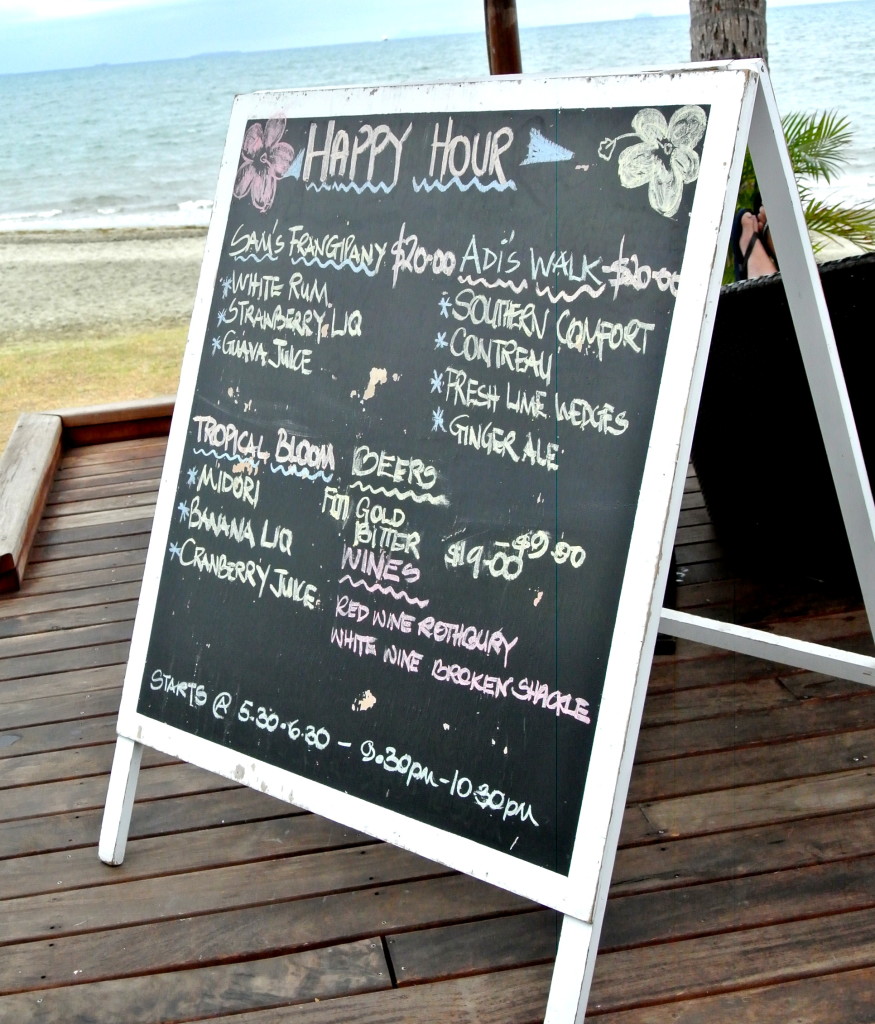 HAPPY HOUR
SAM'S FRANGIPANY $20.00
*WHITE RUM
*STRAWBERRY LIQ
*GUAVA JUICE
ADI'S WALK $20.00
*SOUTHERN COMFORT
*CONTREAU
*FRESH LIME WEDGES
*GINGER ALE
TROPICAL BLOOM
*MIDORI
*BANANA LIQ
*CRANBERRY JUICE
BEERS
FIJI GOLD
BITTER $9.00
WINES $19.00
RED WINE ROTHBURY
WHITE WINE BROKEN SHACKLE
STARTS @ 5.30-6.30 - 9.30pm-10.30pm